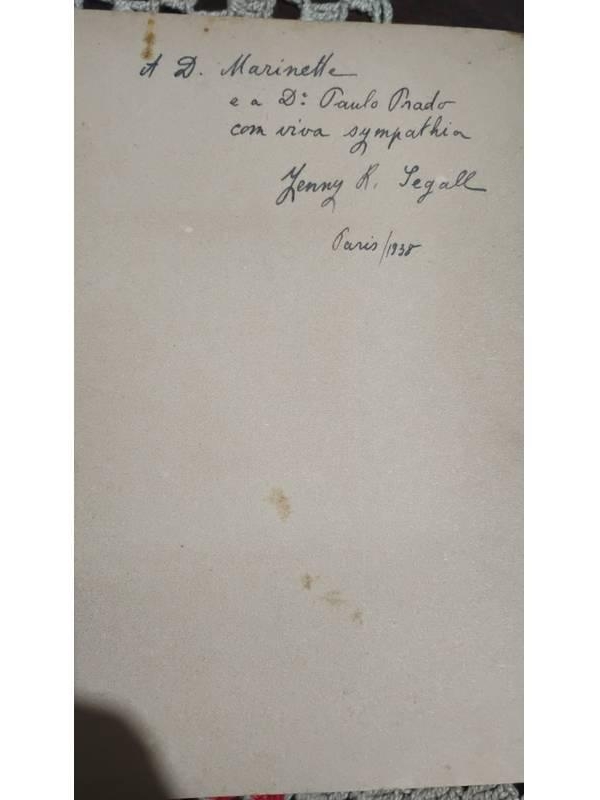 A D. Marinette
e a Dr. Paulo Prado
com viva sympathia
Jenny K. Segall
Paris/1938